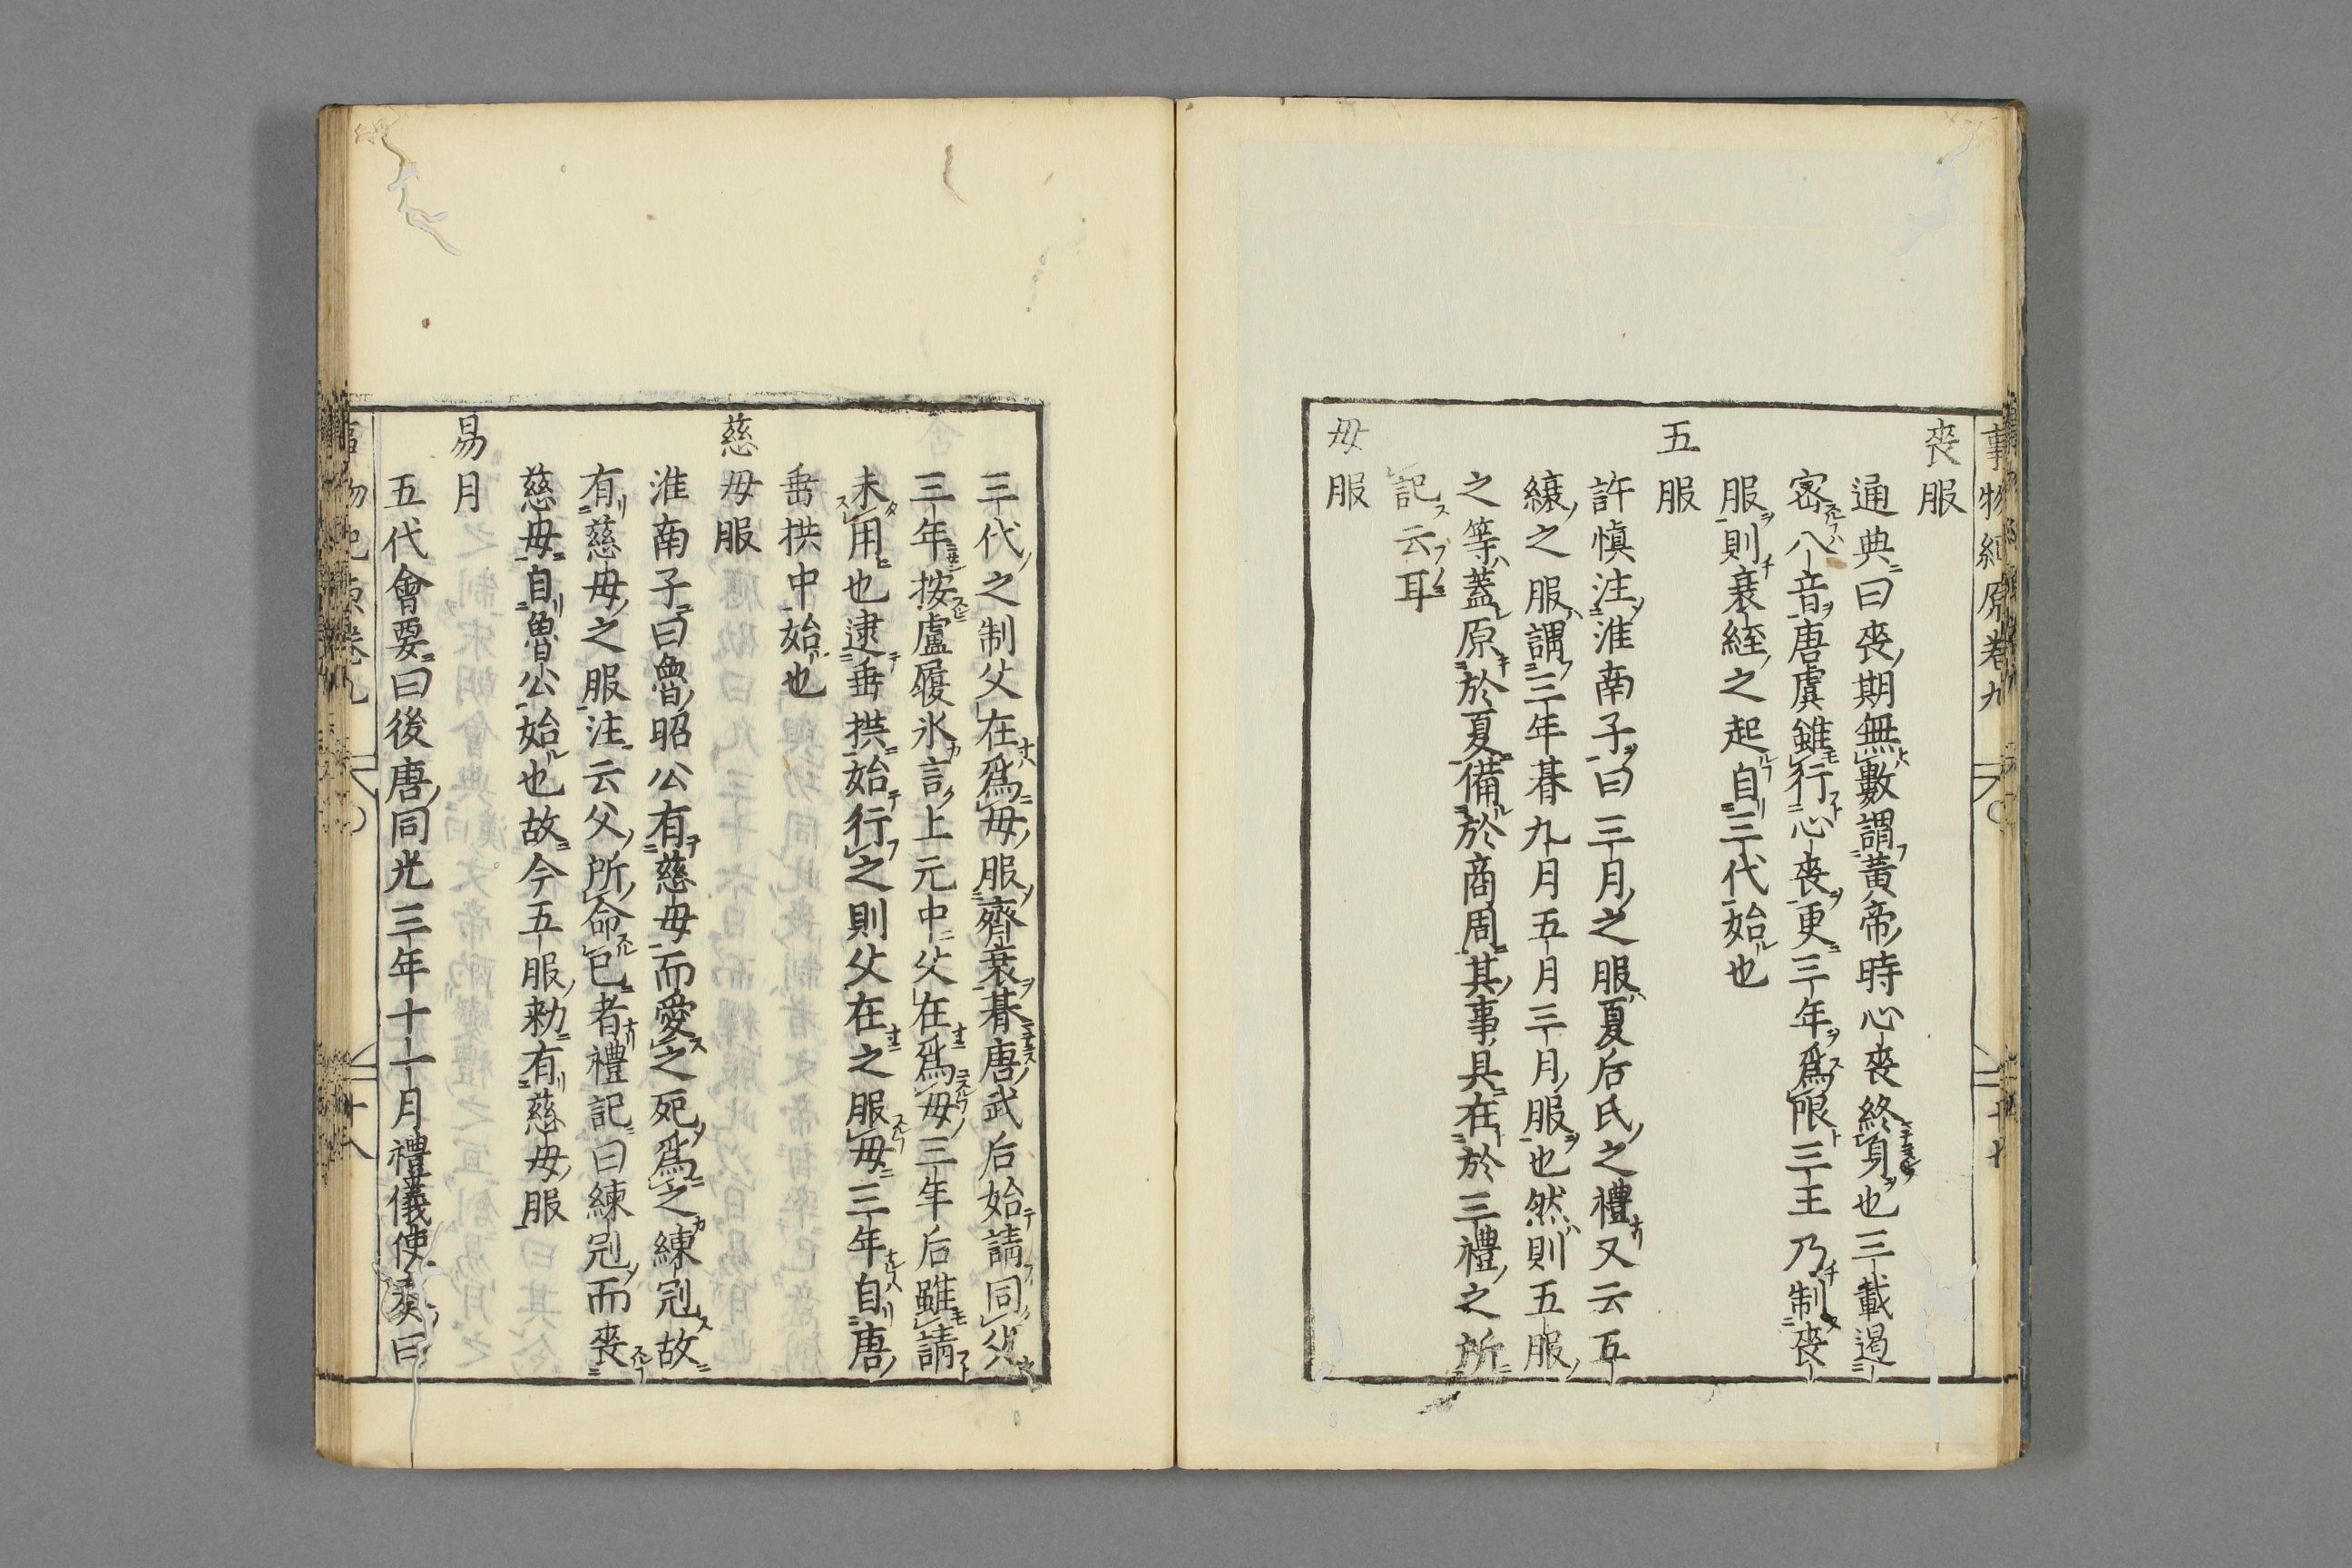 事物紀原卷九
喪服
通典曰喪期無數謂黃帝時心喪終身也三載遏
密八音唐虞雖行心喪更三年爲限三王乃制喪
服則衰絰之起自三代始也
五服
許愼注淮南子曰三月之服夏后氏之禮又云五
縗之服謂三年朞九月五月三月服也然則五服
之等蓋原於夏備於商周其事具在於三禮之所
記云耳
母服
三代之制父在爲母服齊衰朞唐武后始請同父
三年按盧履氷言上元中父在爲母三年后雖請
未用也逮垂拱始行之則父在之服母三年自唐
垂拱中始也
慈母服
淮南子曰魯昭公有慈母而愛之死爲之練冠故
有慈母之服注云父所命已者禮記曰練冠而喪
慈母自魯公始也故今五服勑有慈母服
易月
五代會要曰後唐同光三年十一月禮儀使奏曰